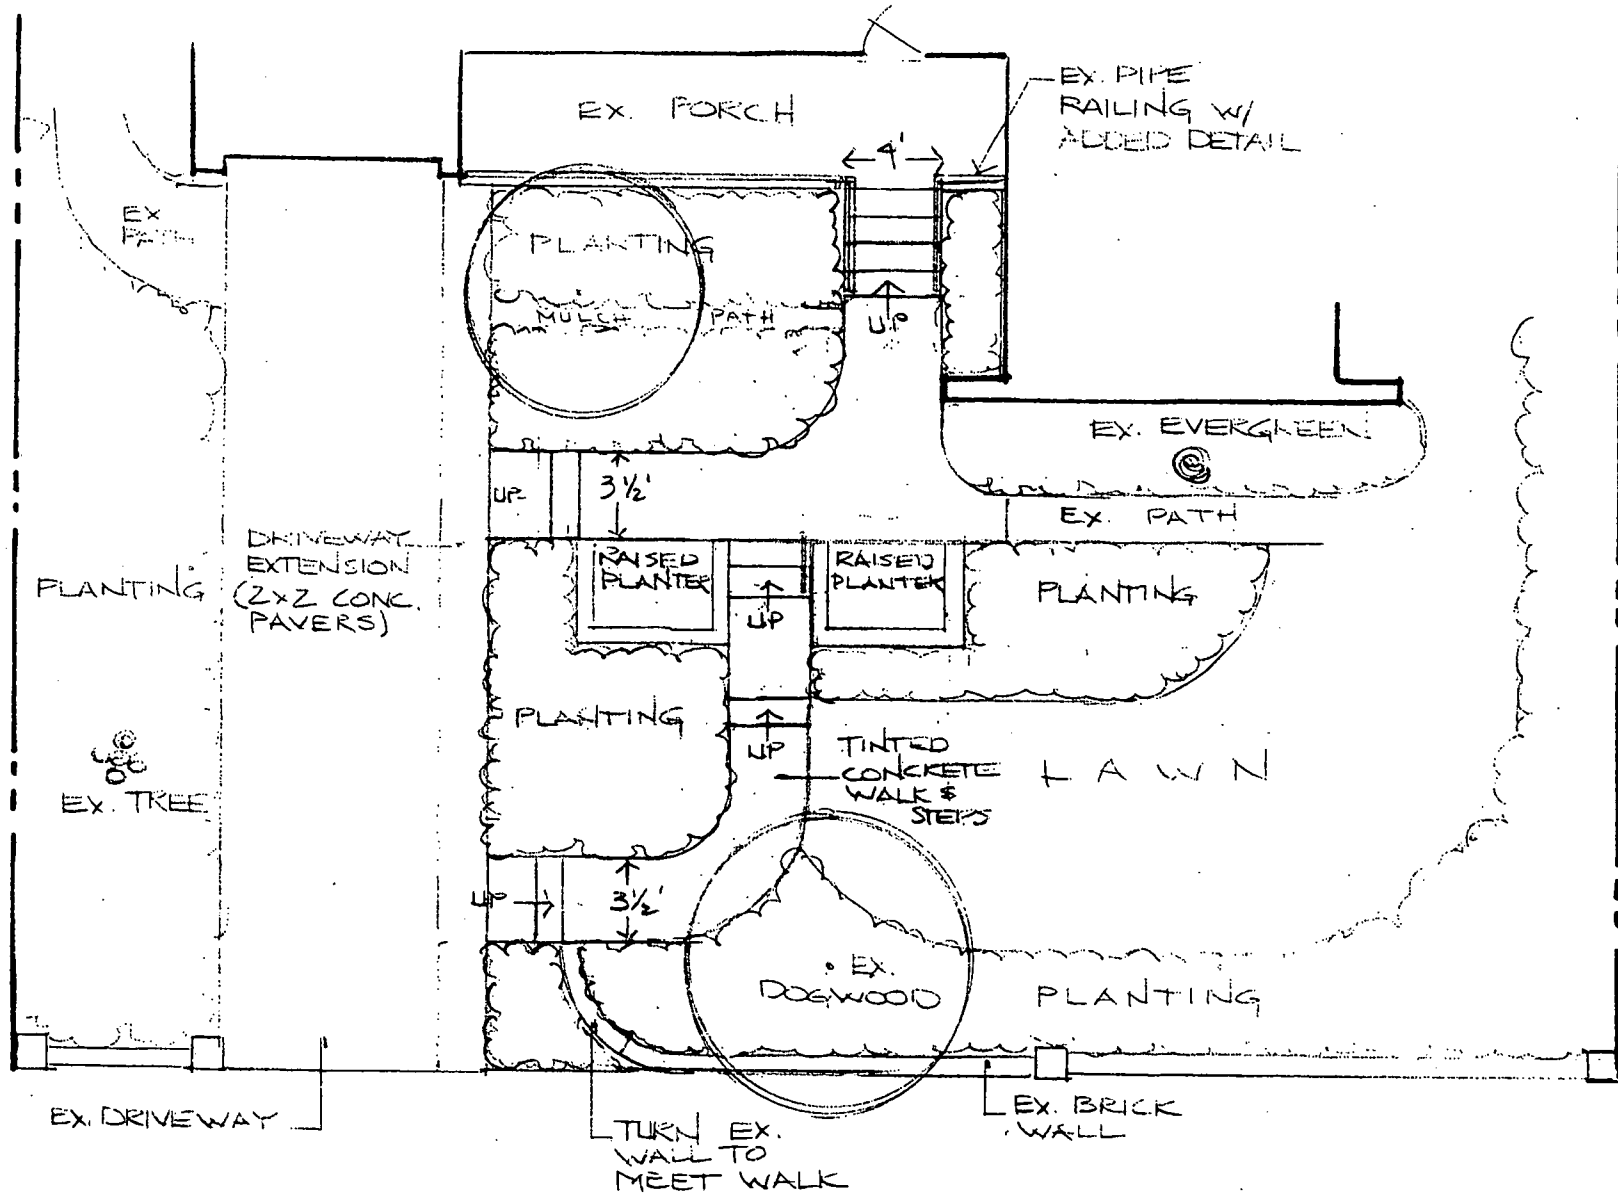 EX. PORCH
EX. PIPE
RAILING W/
ADDED DETAIL
4'
EX
PATH
PLANTING
MULCH PATH
UP
EX. EVERGREEN
UP
3 1/2'
EX. PATH
DRIVEWAY
EXTENSION
(2x2 CONC.
PAVERS)
RAISED
PLANTER
RAISED
PLANTER
PLANTING
PLANTING
UP
PLANTING
UP
TINTED
CONCRETE
WALK &
STEPS
LAWN
EX. TREE
UP
3 1/2'
EX.
DOGWOOD
PLANTING
EX. DRIVEWAY
TURN EX.
WALL TO
MEET WALK
EX. BRICK
WALL